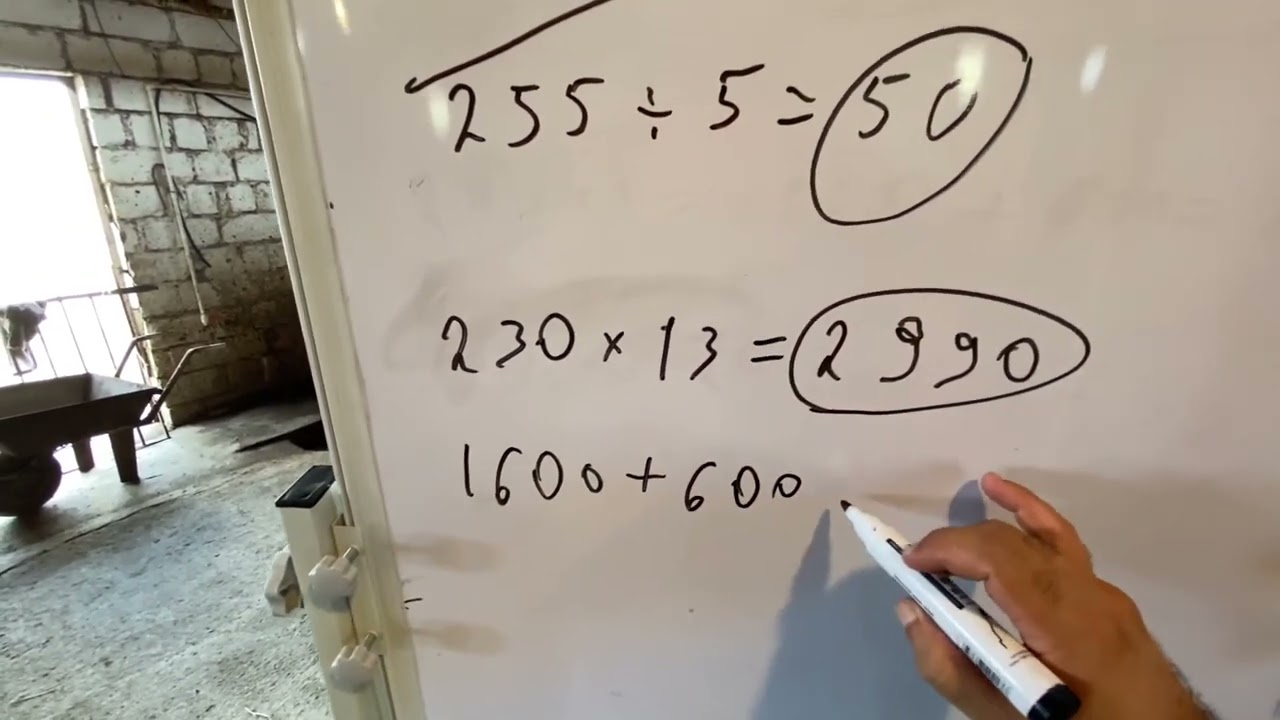 255 ÷ 5 = 50
230 × 13 = 2990
1600 + 600